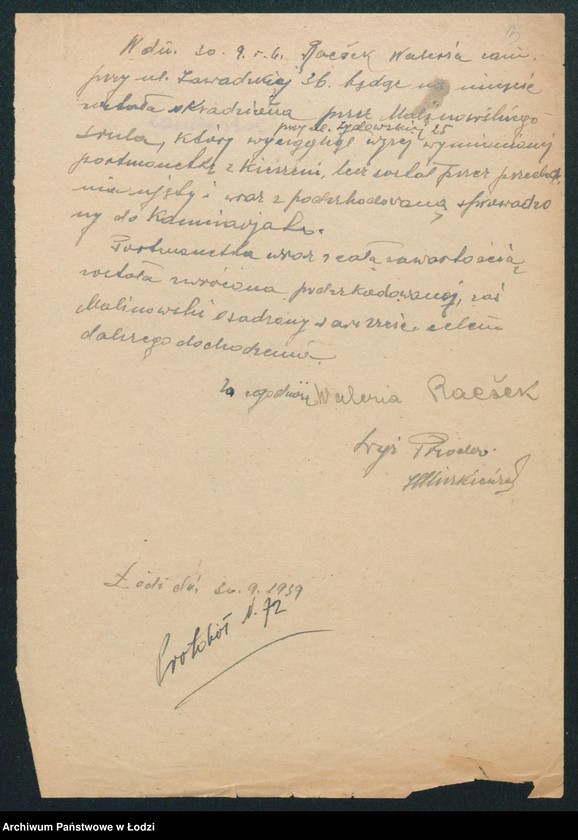 W dn. 20. 9. r. b. Raczek Waleria zam.
przy ul. Zawadzkiej 36. będąc na mieście
została okradziona przez Malinowskiego
przy ul. Żydowskiej 25
który wyciągnął wyżej wymienionej
portmonetkę z kieszeni, lecz został przez
i wraz z poszkodowaną sprowadzo
ny do Komisarjatu.
Portmonetka wraz z całą zawartością
została zwrócona poszkodowanej, zaś
Malinowski osadzony w areszcie celem
dalszego dochodzenia.
Za zgodność Waleria Raczek
Wyż. Przodow.
Łódź dn. 20. 9. 1939
Protokół N. 72
Archiwum Państwowe w Łodzi